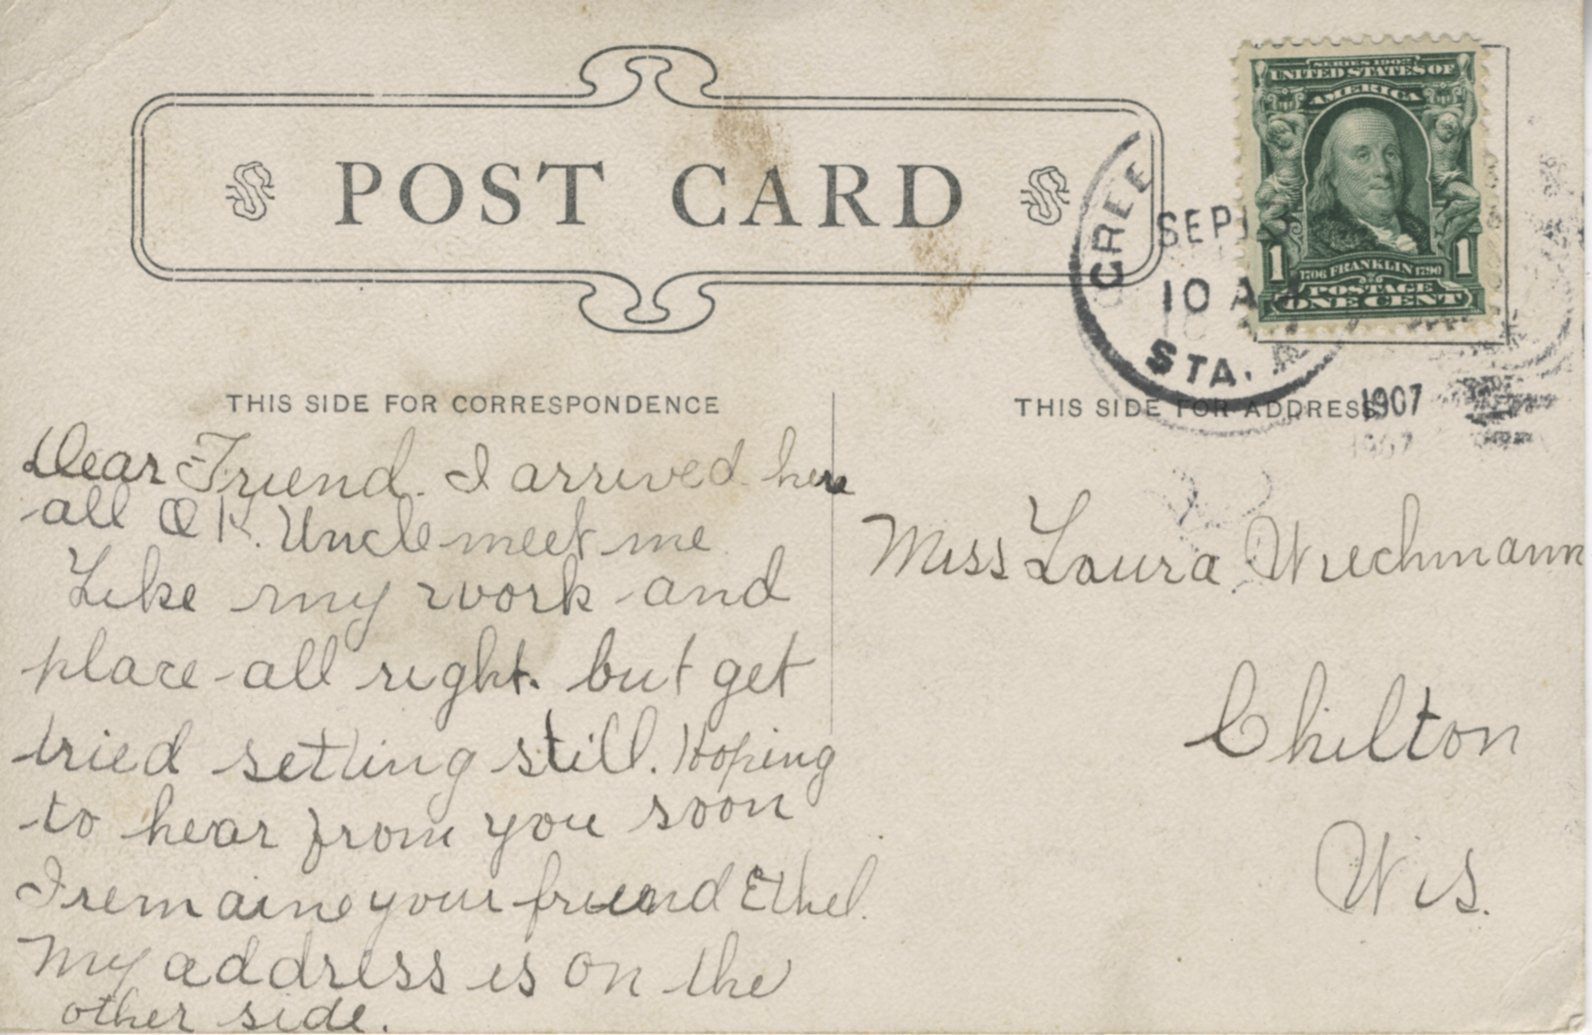 POST CARD
SERIES 1902
UNITED STATES OF
AMERICA
1 1706 FRANKLIN 1790 1
POSTAGE
ONE CENT
GREE
SEP
10 A
STA.
1907
THIS SIDE FOR CORRESPONDENCE
THIS SIDE FOR ADDRESS
Dear Friend. I arrived here
all O K. Uncle meet me
Like my work and
place all right. but get
tried setting still. Hoping
to hear from you soon
I remaine your friend Ethel.
My address is on the
other side.
Miss Laura Wiechmann
Chilton
Wis.